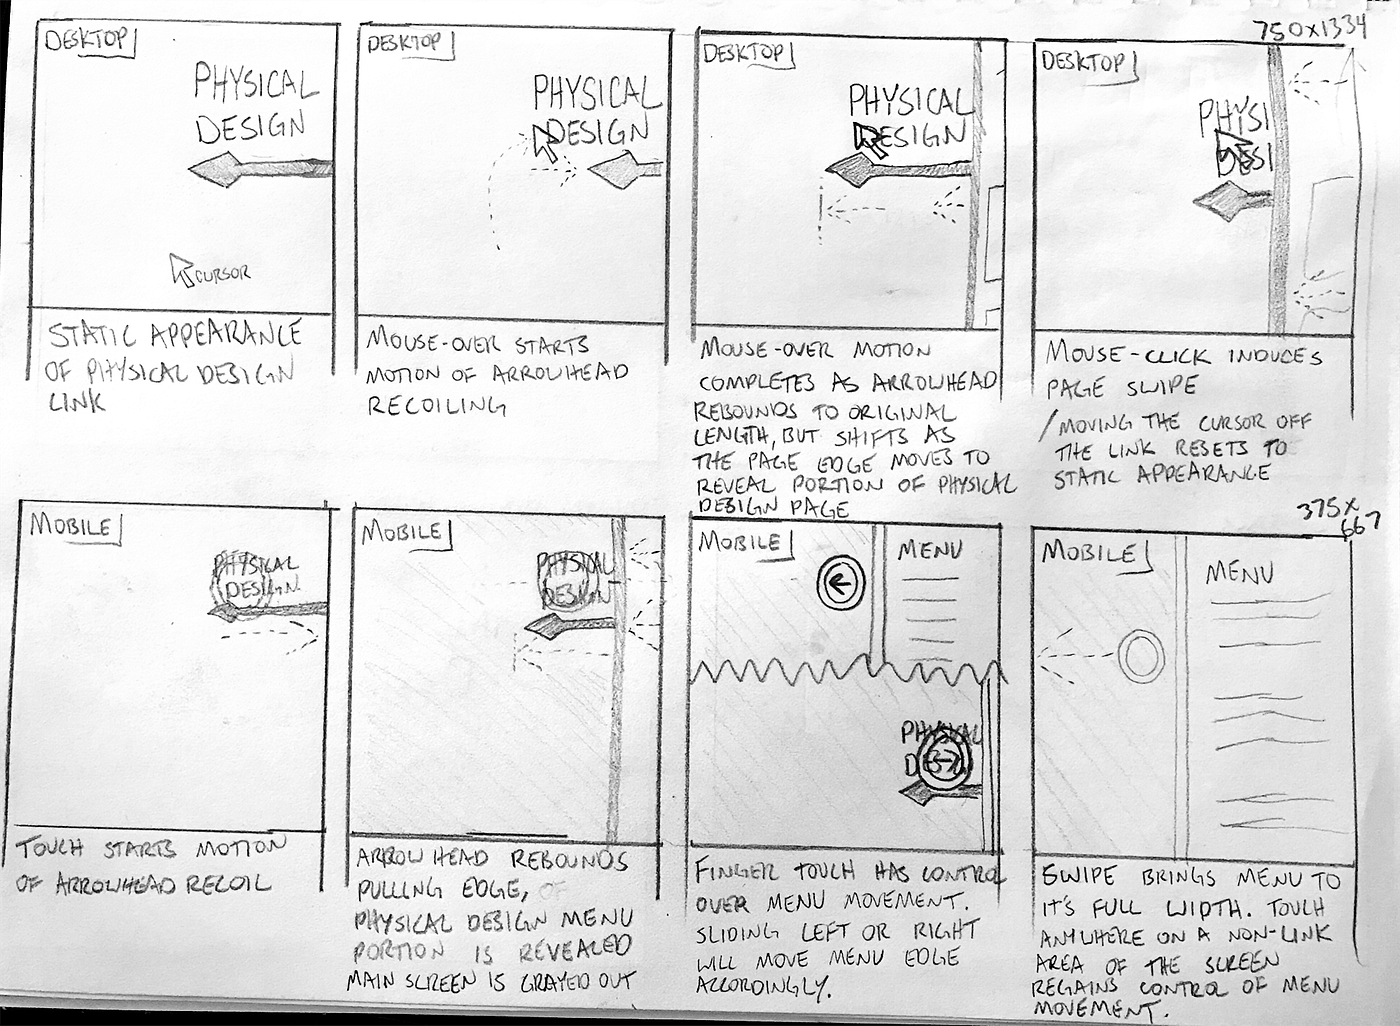 750x1334
DESKTOP
PHYSICAL
DESIGN
CURSOR
STATIC APPEARANCE
OF PHYSICAL DESIGN
LINK
DESKTOP
PHYSICAL
DESIGN
MOUSE-OVER STARTS
MOTION OF ARROWHEAD
RECOILING
DESKTOP
PHYSICAL
DESIGN
MOUSE-OVER MOTION
COMPLETES AS ARROWHEAD
REBOUNDS TO ORIGINAL
LENGTH, BUT SHIFTS AS
THE PAGE EDGE MOVES TO
REVEAL PORTION OF PHYSICAL
DESIGN PAGE
DESKTOP
PHYSI
DESI
MOUSE-CLICK INDUCES
PAGE SWIPE
/MOVING THE CURSOR OFF
THE LINK RESETS TO
STATIC APPEARANCE
375x
667
MOBILE
PHYSICAL
DESIGN
TOUCH STARTS MOTION
OF ARROWHEAD RECOIL
MOBILE
PHYSICAL
DESIGN
ARROWHEAD REBOUNDS
PULLING EDGE, OF
PHYSICAL DESIGN MENU
PORTION IS REVEALED
MAIN SCREEN IS GRAYED OUT
MOBILE
MENU
PHYSICAL
DESIGN
FINGER TOUCH HAS CONTROL
OVER MENU MOVEMENT.
SLIDING LEFT OR RIGHT
WILL MOVE MENU EDGE
ACCORDINGLY.
MOBILE
MENU
SWIPE BRINGS MENU TO
IT'S FULL WIDTH. TOUCH
ANYWHERE ON A NON-LINK
AREA OF THE SCREEN
REGAINS CONTROL OF MENU
MOVEMENT.